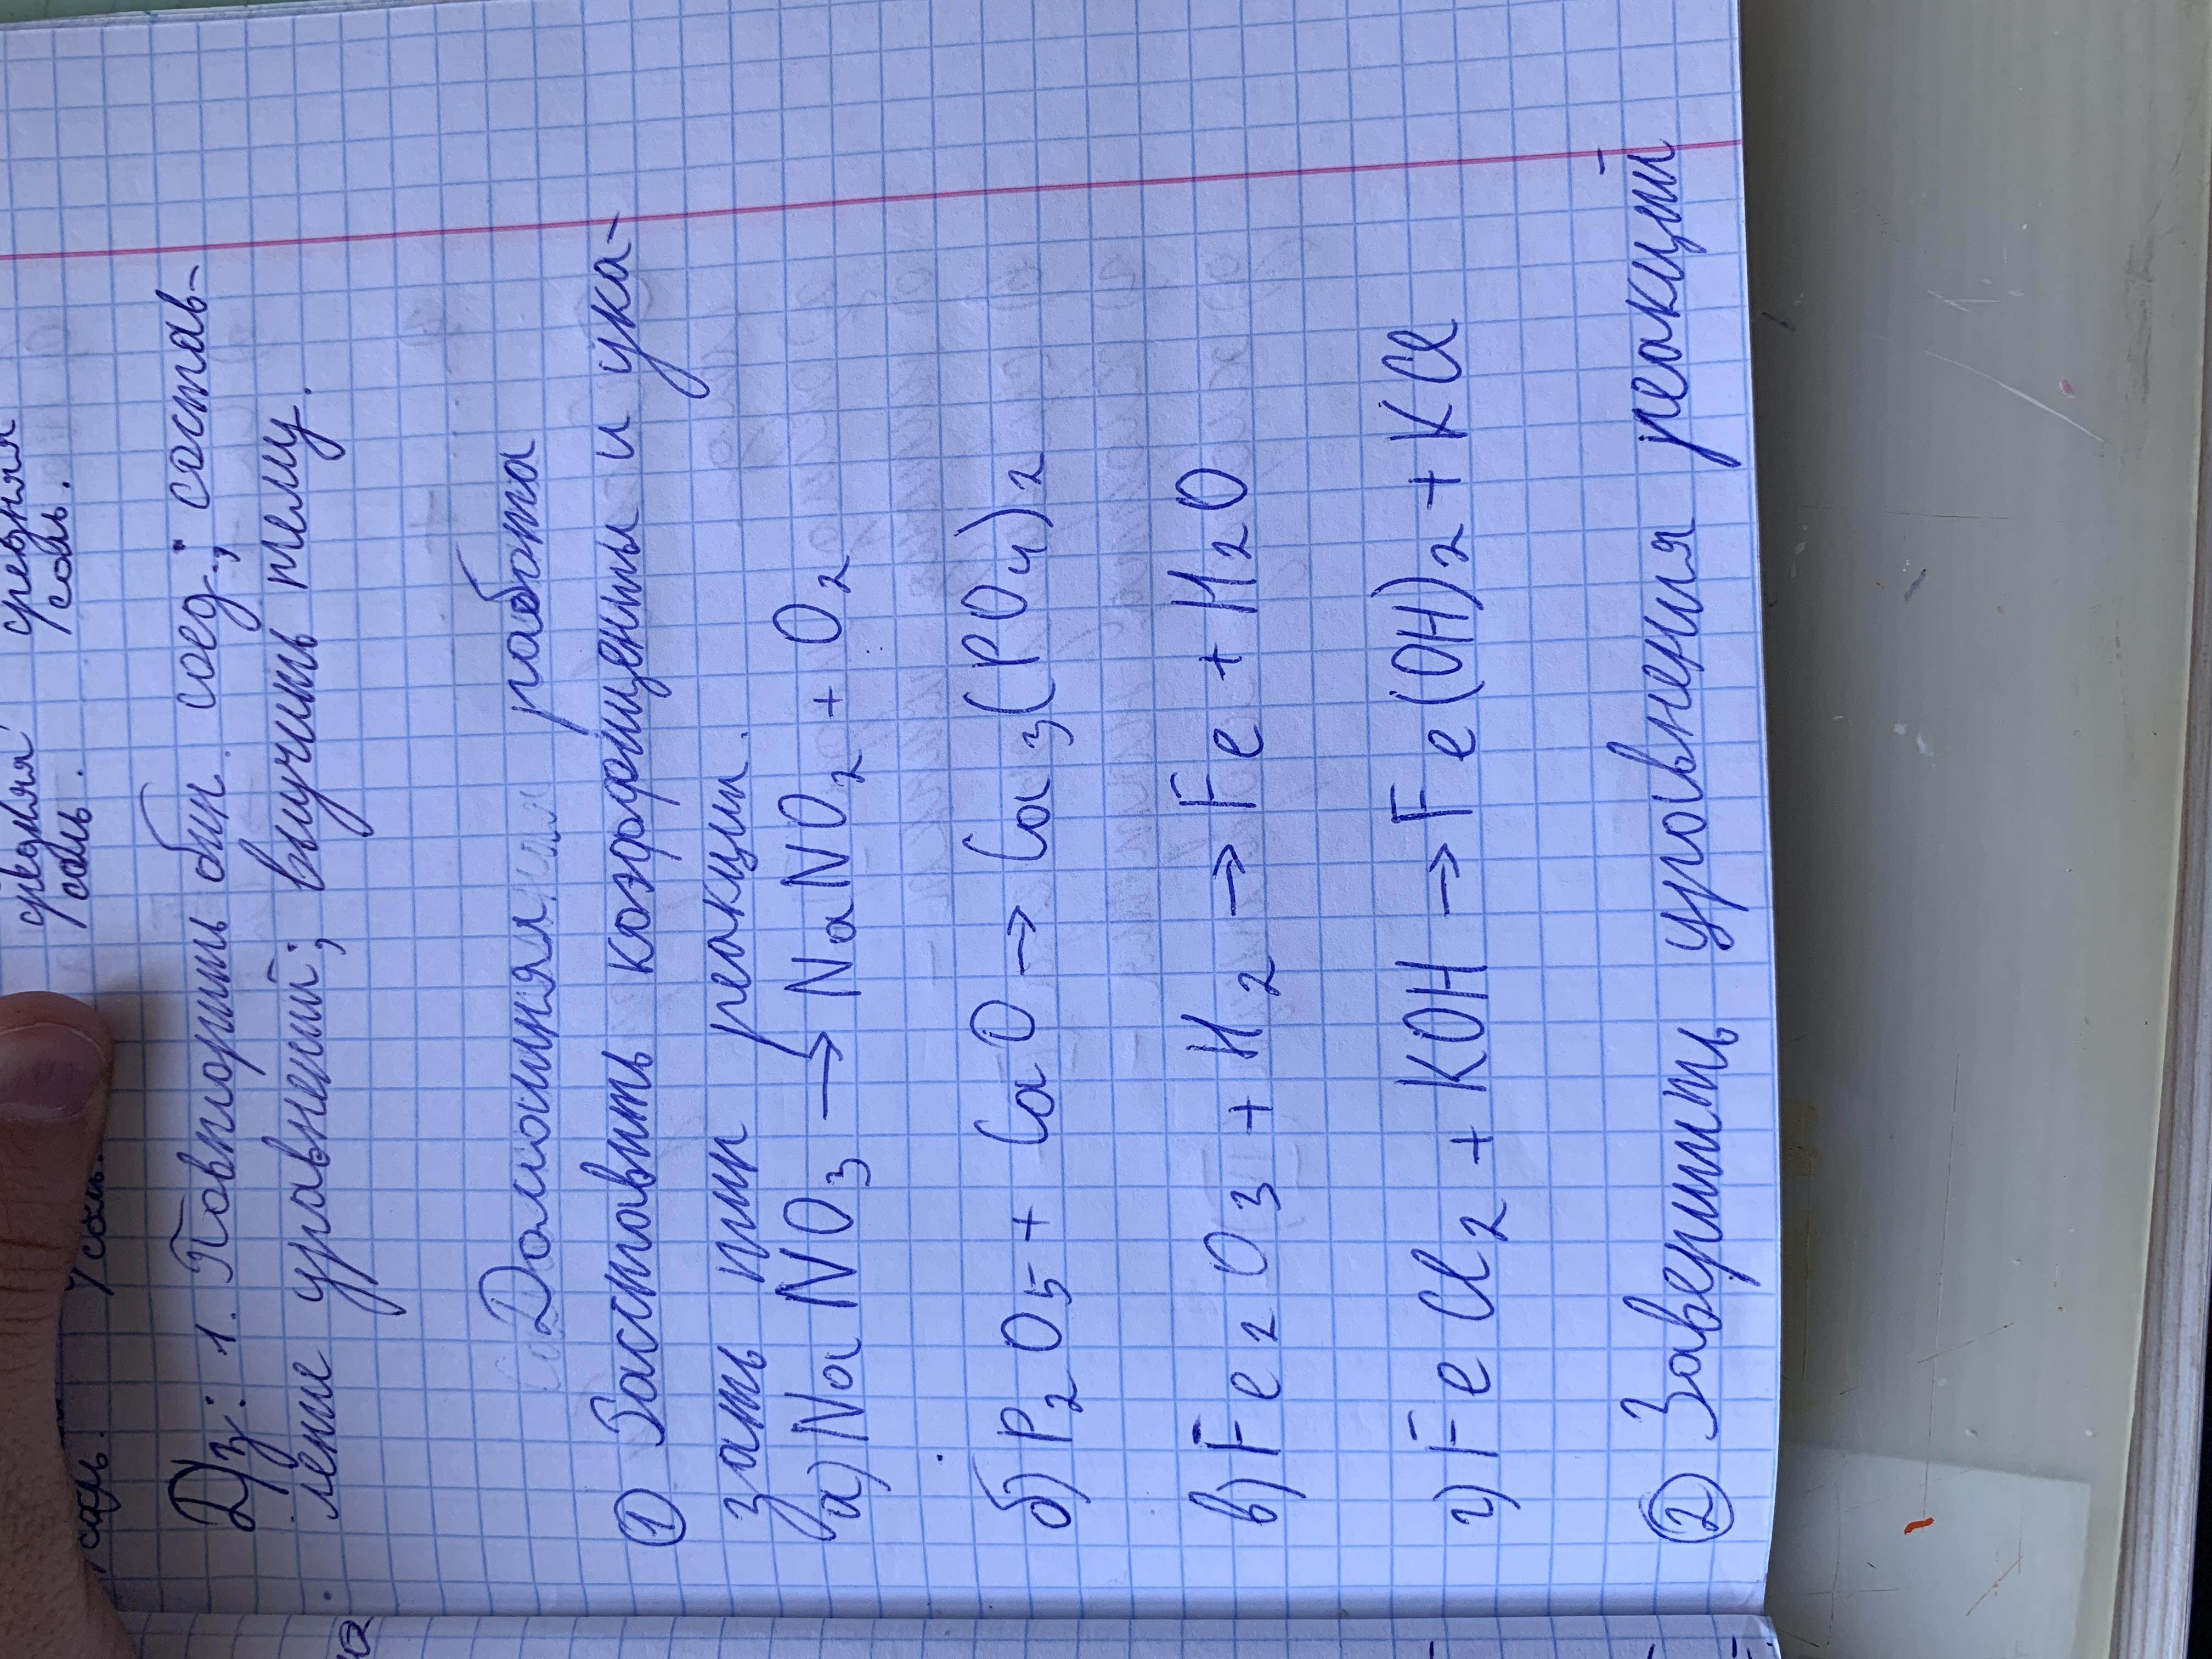 средняя средняя
соль. соль.
Дз: 1. Повторить бин. соед.; состав-
ление уравнений; выучить тему.
Домашняя работа
① Расставить коэффициенты и ука-
зать тип реакции.
а) NaNO₃ → NaNO₂ + O₂
б) P₂O₅ + CaO → Ca₃(PO₄)₂
в) Fe₂O₃ + H₂ → Fe + H₂O
г) FeCl₂ + KOH → Fe(OH)₂ + KCl
② Завершить уровнения реакций